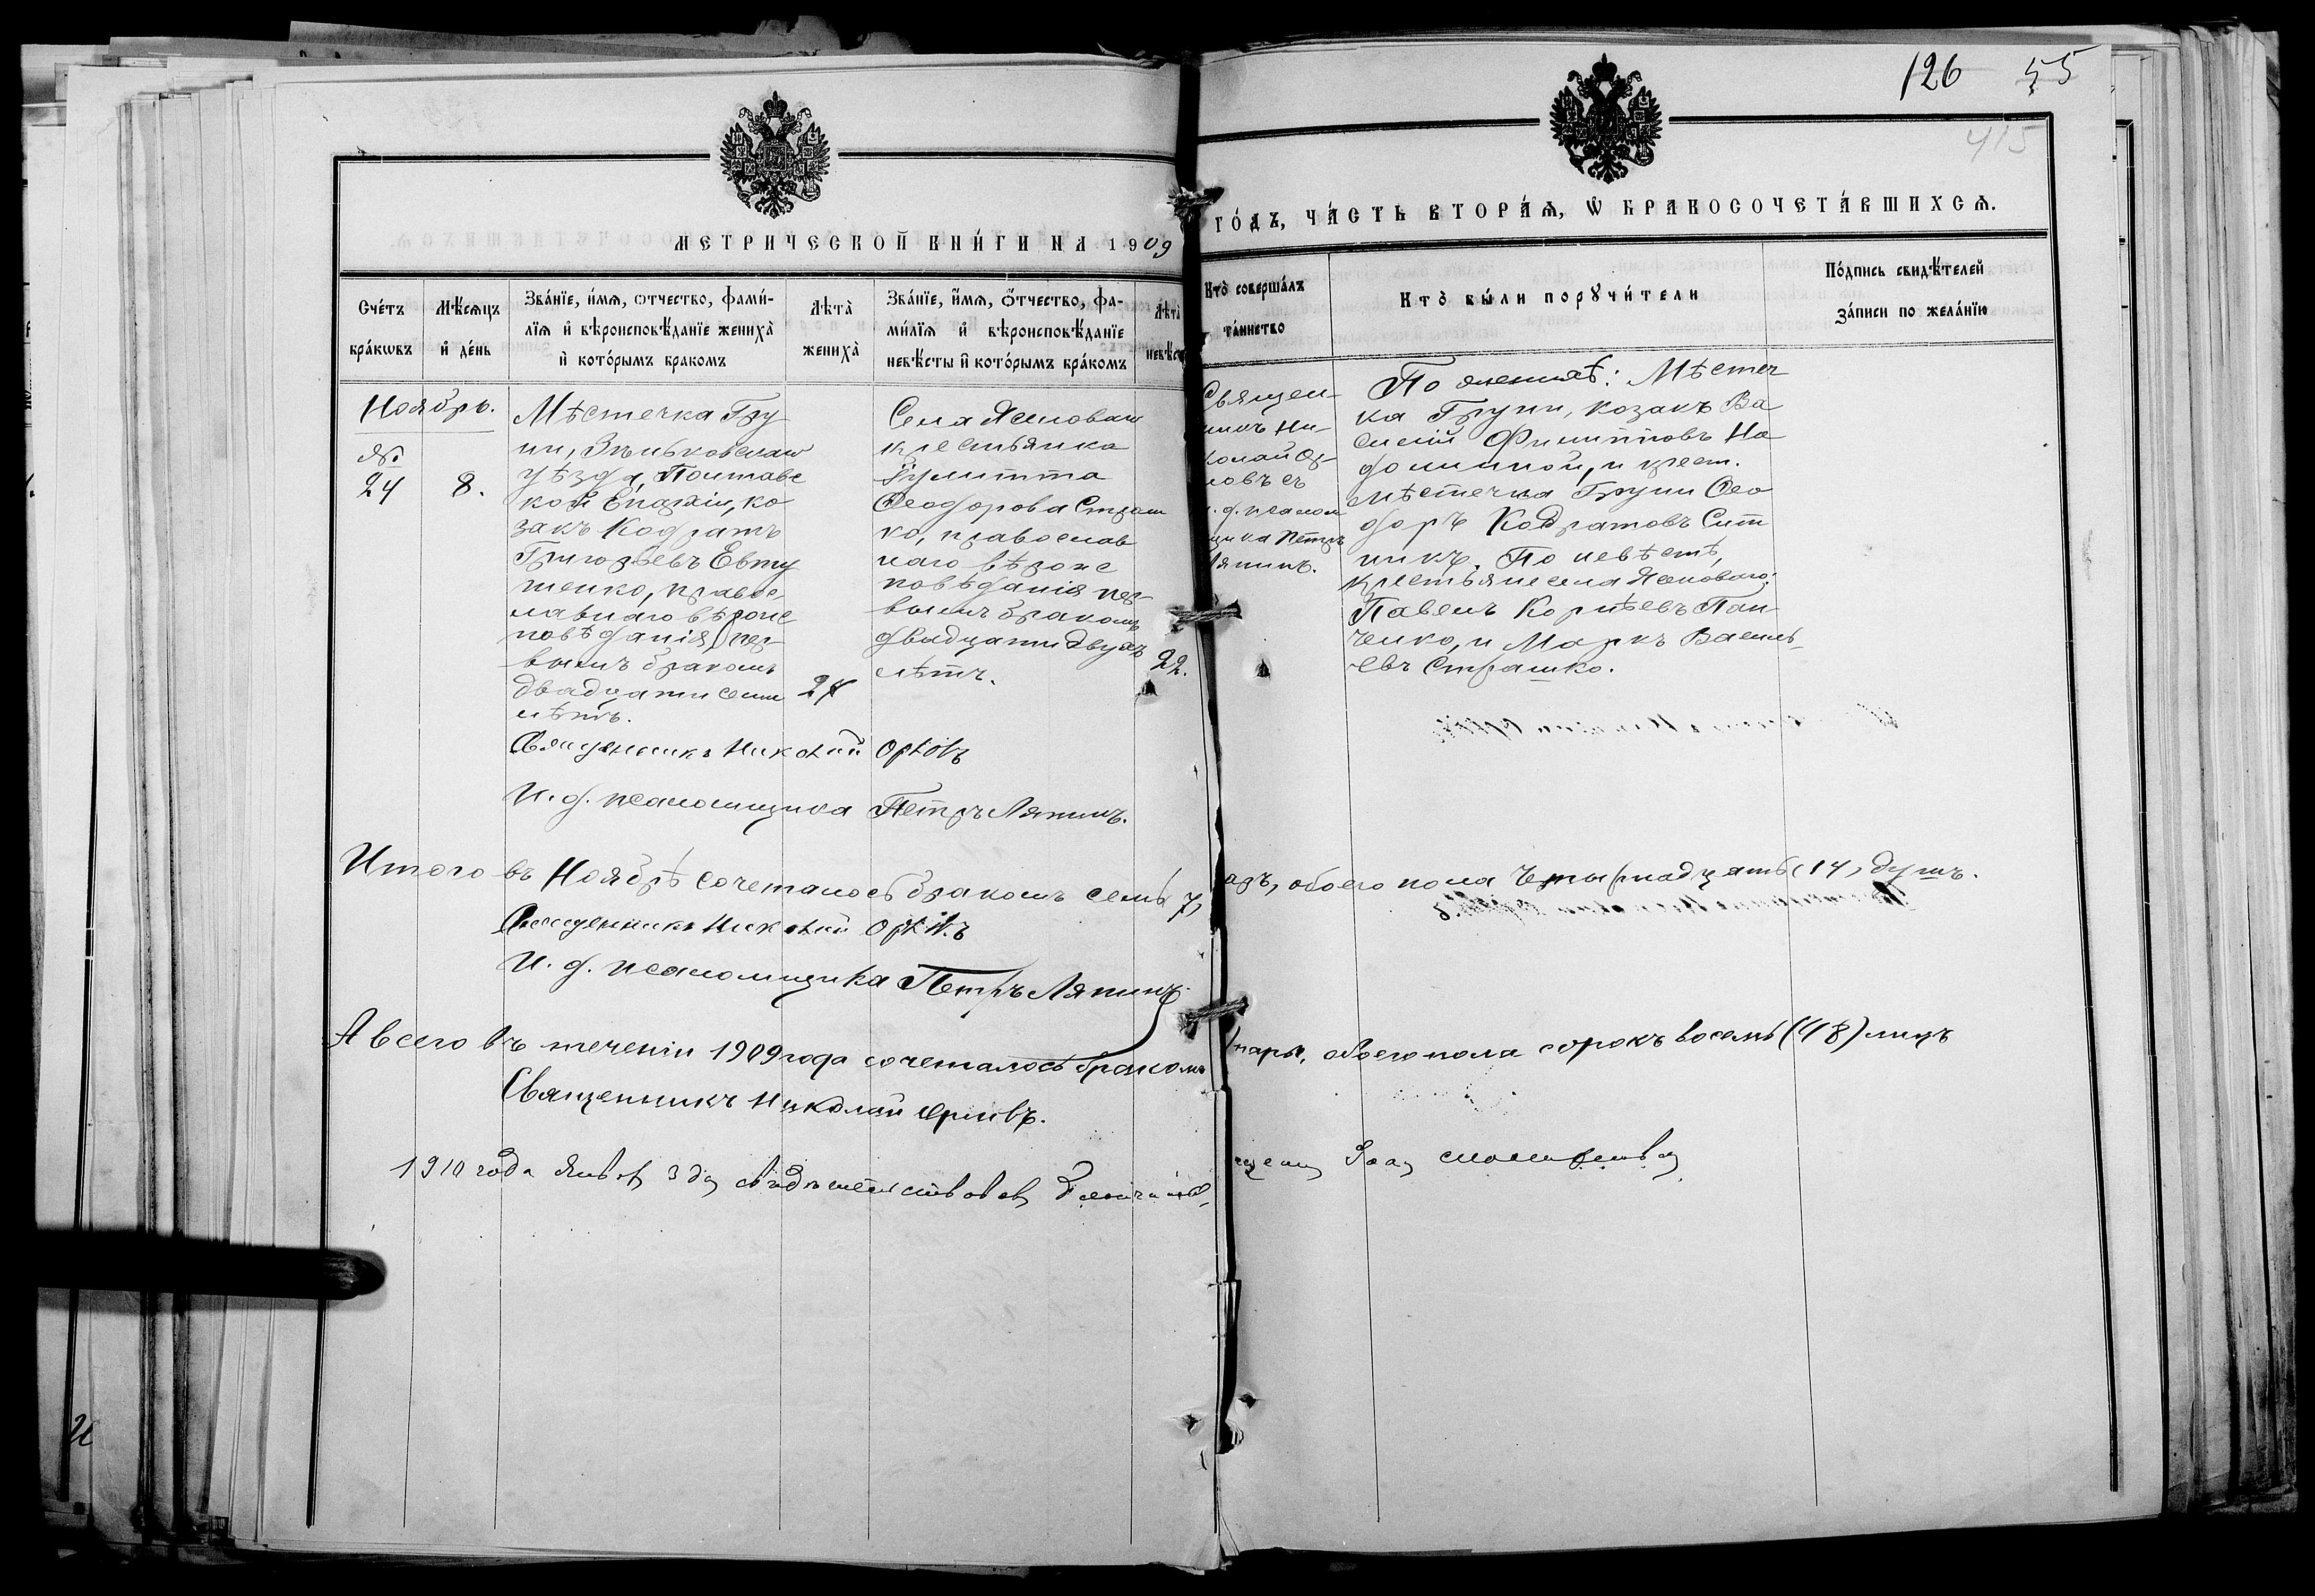 126 55
415
МЕТРИЧЕСКОЙ КНИ́ГИ НА 1909
ГО́ДЪ, ЧА́СТЬ ВТОРА́Ѧ, Ѡ҆ БРАКОСОЧЕТА́ВШИХСѦ.
Сче́тъ бра́кѡвъ
Мѣ́сѧцъ и҆ де́нь
Зва́нїе, и҆́мѧ, ѻтчество, фами́-
лїѧ и҆ вѣроисповѣ́данїе жениха̀
и҆ кото́рымъ бракомъ
Лѣта̀ жениха̀
Зва́нїе, и҆́мѧ, ѻ҆́тчество, фа-
ми́лїѧ и҆ вѣроисповѣ́данїе
невѣ́сты и҆ кото́рымъ бра́комъ
Лѣта̀
невѣ́с
Кто̀ соверша́лъ
та́инство
Кто̀ бы́ли порꙋчи́тели
По́дпись свидѣ́телей
за́писи по жела́нїю
Ноябрь.
№
24
8.
Мѣстечка Гру
ни, Зѣньковскаго
уѣзда, Полтавс
кой Епархіи, ко
закъ Кодратъ
Григорьевъ Евту
шенко, правос-
лавнаго вѣроис
повѣданія, пер-
вымъ бракомъ
двадцати семи
лѣтъ.
27
Села Ясеноваго
крестьянка
Ѳеодорова Страш
ко, православ
наго вѣроис
повѣданія пер-
вымъ бракомъ
двадцати двухъ
лѣтъ.
22.
Священ-
никъ Ни-
колай Ор-
ловъ съ
и. д. псалом
щика Петръ
Ляпинъ.
По женихѣ: Мѣстеч
ка Груни, козакъ Ва
силій Филипповъ На
долинной, и крест.
мѣстечка Груни Ѳео
доръ Кодратовъ Сит
никъ. По невѣстѣ,
крестьяне села Ясеноваго:
Павелъ Корнѣевъ Пан-
ченко, и Маркъ Василь-
евъ Страшко.
Священникъ Николай Орловъ
И. д. псаломщика Петръ Ляпинъ.
Итого въ Ноябрѣ сочеталось бракомъ семь (7) паръ, обоего пола четырнадцать (14) душъ.
Священникъ Николай Орловъ
И. д. псаломщика Петръ Ляпинъ.
А всего въ теченіи 1909 года сочеталось бракомъ пары, обоего пола сорокъ восемь (48) лицъ
Священникъ Николай Орловъ.
1910 года Янв 3 дня свидѣтельствовалъ